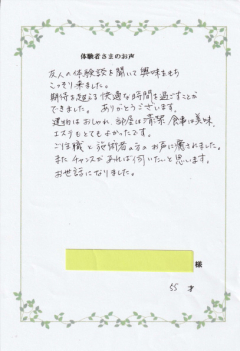 体験者さまのお声
友人の体験談を聞いて興味をもち
こっそり来ました。
期待を超える快適な時間を過ごすことが
できました。ありがとうございます。
建物はおしゃれ、部屋は清潔、食事は美味、
エステもとてもよかったです。
ご住職と施術者の方のお声に癒されました。
またチャンスがあれば伺いたいと思います。
お世話になりました。
様
55 才